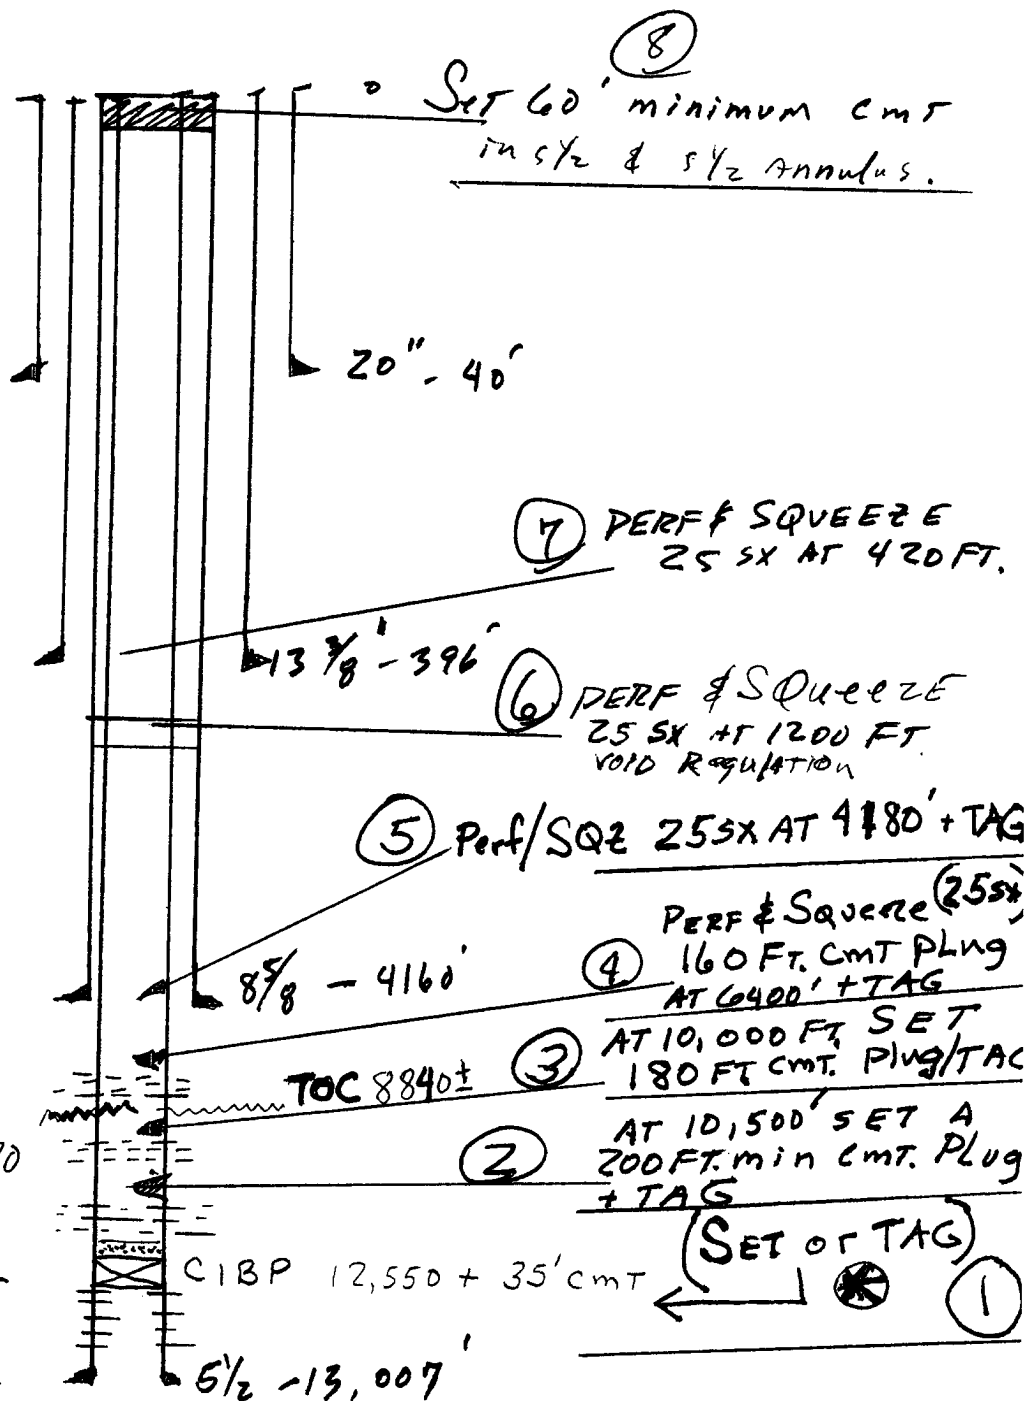 8
Set 60' minimum cmt
in 5 1/2 & 5 1/2 Annulus.
20" - 40'
7 PERF & SQUEEZE
25 SX AT 420 FT.
13 3/8' - 396'
6 PERF & SQueeZE
25 SX AT 1200 FT
VOID RegulATIOn
5 Perf/SQZ 25SX AT 4180' + TAG
PERF & Squeeze (25sx)
4 160 FT. CmT PLug
AT 6400' + TAG
8 5/8 - 4160'
3 AT 10,000 FT, SET
180 FT CmT. Plug/TAG
TOC 8840±
2 AT 10,500' SET A
200 FT. min Cmt. PLug
+ TAG
(SET or TAG)
1
CIBP 12,550 + 35' CmT
5 1/2 - 13,007'